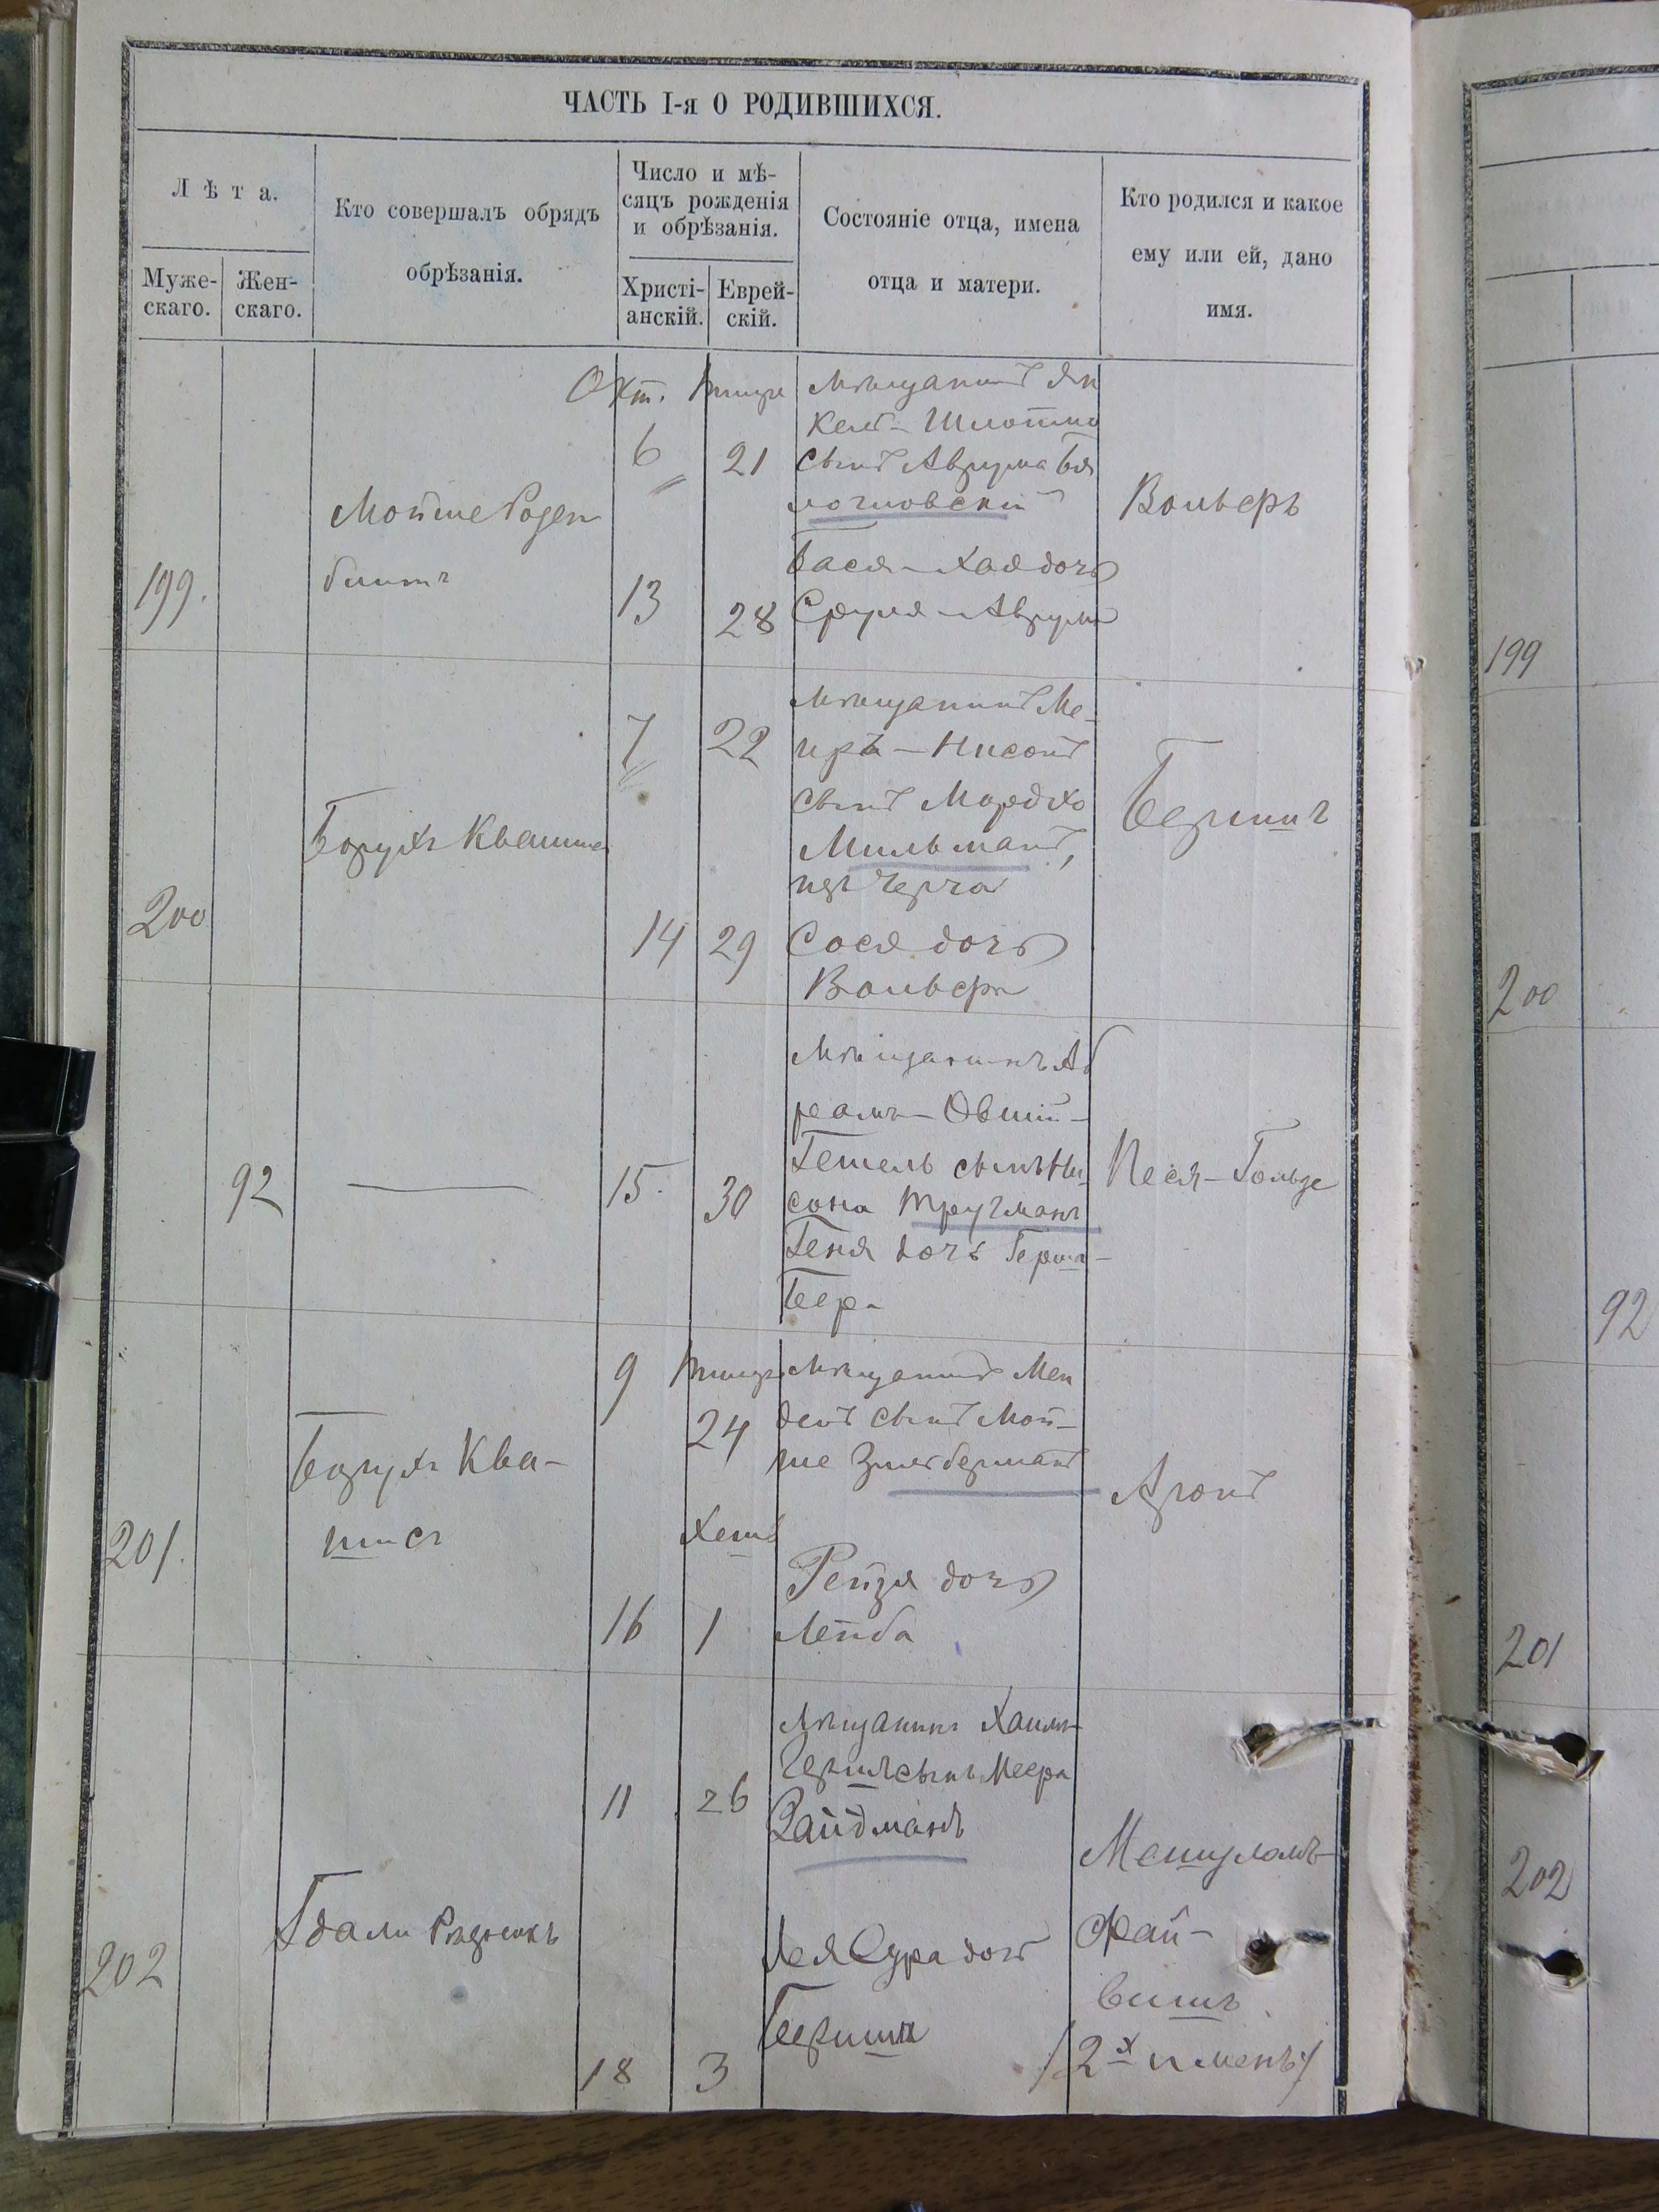 ЧАСТЬ I-я О РОДИВШИХСЯ.
Лѣта.
Муже-
скаго.
Жен-
скаго.
Кто совершалъ обрядъ
обрѣзанія.
Число и мѣ-
сяцъ рожденія
и обрѣзанія.
Христі-
анскій.
Еврей-
скій.
Состояніе отца, имена
отца и матери.
Кто родился и какое
ему или ей, дано
имя.
199.
Мойше Роден
блитъ
Окт.
6
13
Тишре
21
28
Мѣщанинъ Ян
кель-Шлоймо
сынъ Аврума Бя
Бася-Хая дочь
Сруля-Аврума
Вольфъ
200
Борухъ Квашис
7
14
22
29
Мѣщанинъ Ме-
иръ-Нисонъ
сынъ Мордко
Мильманъ,
изъ
Сося дочь
Вольфа
Бериш
92
15.
30
Мѣщанинъ Аб
рамъ-Овший-
Гешель сынъ Ни
сона Тругманъ
Геня дочь Герша-
Бера
Песя-Гольде
201.
Борухъ Ква-
шисъ
9
16
Тишре
24
Хешв
1
Мѣщанинъ Мен
дель сынъ Мой-
ше Зильберманъ
Рейзя дочь
Лейба
Аронъ
202
Гдали
11
18
26
3
Мѣщанинъ Хаимъ-
Гершъ сынъ Меера
Зайдманъ
Лея Сура дочь
Бериша
Мешуламъ-
Фай-
вишъ
/2-х именъ/
199
200
92
201
202